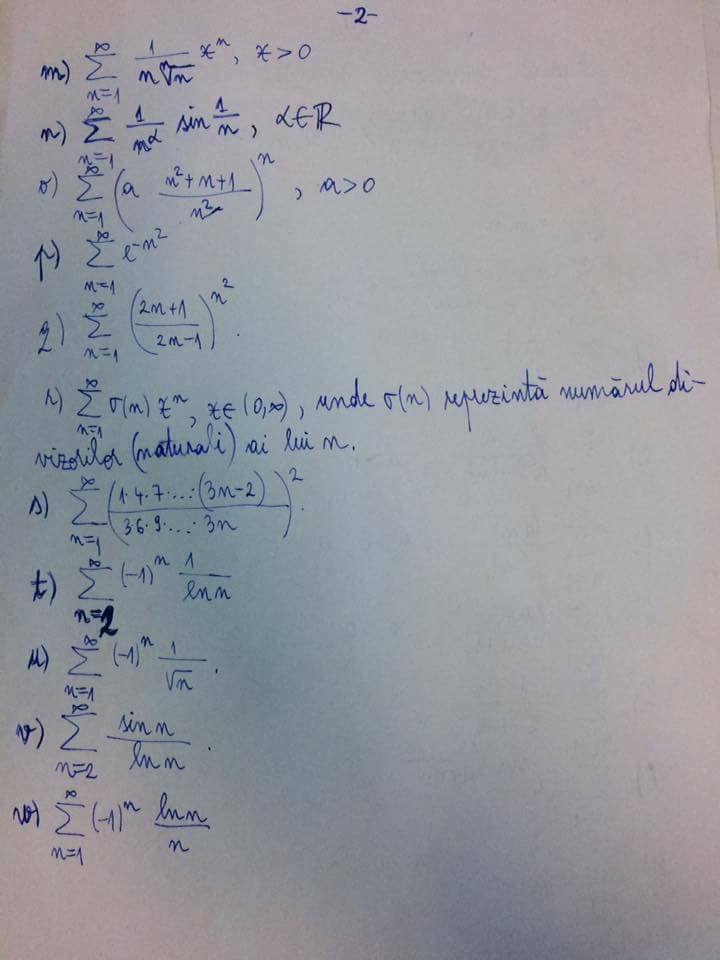 -2-
m) ∑_{n=1}^{∞} 1/(n ⁿ√n) xⁿ, x > 0
n) ∑_{n=1}^{∞} 1/n^α sin 1/n, α∈ℝ
o) ∑_{n=1}^{∞} (a (n²+n+1)/n²)ⁿ, a>0
p) ∑_{n=1}^{∞} e^{-n²}
q) ∑_{n=1}^{∞} ((2n+1)/(2n-1))^{n²}.
r) ∑_{n=1}^{∞} σ(n) xⁿ, x∈(0,∞), unde σ(n) reprezintă numărul di-
vizorilor (naturali) ai lui n.
s) ∑_{n=1}^{∞} ((1·4·7·...·(3n-2))/(3 6·9·...·3n))².
t) ∑_{n=2}^{∞} (-1)ⁿ 1/ln n
u) ∑_{n=1}^{∞} (-1)ⁿ 1/√n.
v) ∑_{n=2}^{∞} sin n/ln n.
w) ∑_{n=1}^{∞} (-1)ⁿ ln n/n